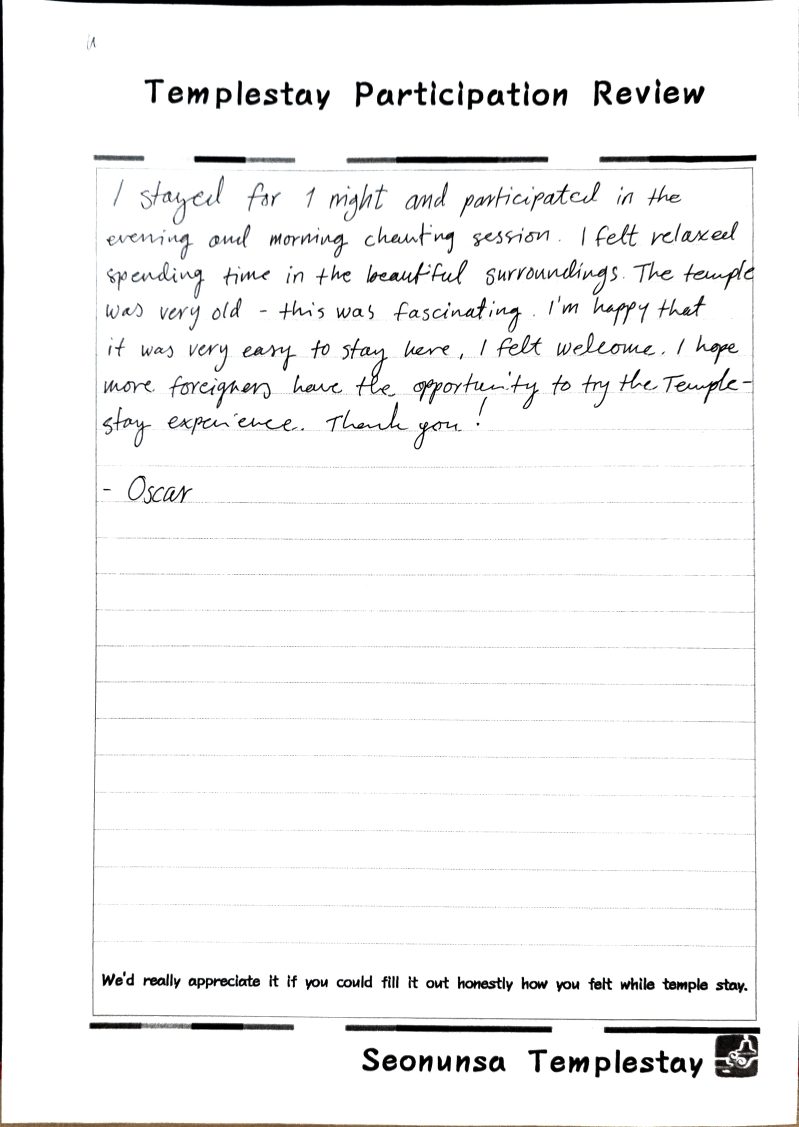 Templestay Participation Review
I stayed for 1 night and participated in the
evening and morning chanting session. I felt relaxed
spending time in the beautiful surroundings. The temple
was very old - this was fascinating. I'm happy that
it was very easy to stay here, I felt welcome. I hope
more foreigners have the opportunity to try the Temple-
stay experience. Thank you!
- Oscar
We'd really appreciate it if you could fill it out honestly how you felt while temple stay.
Seonunsa Templestay